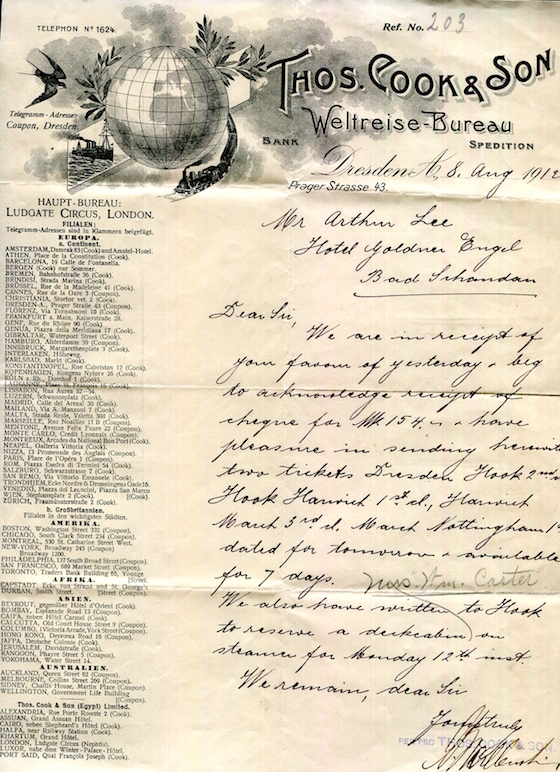 TELEPHON Nº 1624.
Ref. No. 203
Telegramm-Adresse:
Coupon, Dresden.
THOS. COOK & SON
Weltreise-Bureau
BANK
SPEDITION
Dresden A, 8. Aug 1912
Prager Strasse 43.
HAUPT-BUREAU:
LUDGATE CIRCUS, LONDON.
FILIALEN:
Telegramm-Adressen sind in Klammern beigefügt.
EUROPA.
a. Continent.
AMSTERDAM, Damrak 83 (Cook) und Amstel-Hotel.
ATHEN, Place de la Constitution (Cook).
BARCELONA, 19 Calle de Fontanella.
BERGEN (Cook) nur Sommer
BREMEN, Bahnhofstrasse 36 (Cook).
BRINDISI, Strada Marina (Cook).
BRÜSSEL, Rue de la Madeleine 41 (Cook).
CANNES, Rue de la Gare 3 (Coupon).
CHRISTIANIA, Stortor vet. 2 (Cook).
DRESDEN-A., Prager Straße 43 (Coupon).
FLORENZ, Via Tornabuoni 10 (Cook).
FRANKFURT a. Main, Kaiserstraße 28.
GENF, Rue du Rhône 90 (Cook)
GENUA, Piazza della Meridiana 17 (Cook).
GIBRALTAR, Waterport Street (Cook).
HAMBURG, Alsterdamm 39 (Cook).
INNSBRUCK, Margarethenplatz 3 (Cook).
INTERLAKEN, Höheweg.
KARLSBAD, Markt (Cook).
KONSTANTINOPEL, Rue Cabristan 12 (Cook)
KOPENHAGEN, Kongens Nytorv 26 (Cook).
KÖLN a. Rh., Domhof 1 (Cook).
LAUSANNE, Place St. François 16 (Cook).
LISSABON, Rua Aurea 52–54.
LUZERN, Schwanenplatz (Cook).
MADRID, Calle del Arenal 30 (Cook).
MAILAND, Via A. Manzoni 7 (Cook).
MALTA, Strada Reale, Valetta 308 (Cook).
MARSEILLE, Rue Noailles 11 B (Cook).
MENTONE, Avenue Felix Faure 22 (Coupon).
MONTE CARLO, Credit Lyonnais (Coupon).
MONTREUX, Arcades du National Bon Port (Cook).
NEAPEL, Galleria Vittoria (Cook).
NIZZA, 13 Promenade des Anglais (Coupon).
PARIS, Place de l'Opéra 1 (Coupon).
ROM, Piazza Esedra di Termini 54 (Cook).
SALZBURG, Schwarzstrasse 7 (Cook).
SAN REMO, Via Vittorio Emanuele (Cook).
TRONDHJEM, Ecke Nordre & Dronningens Gade 16.
VENEDIG, Piazza dei Leoncini, Piazza San Marco
WIEN, Stephansplatz 2 (Cook). [(Cook).
ZÜRICH, Fraumünsterstraße 2 (Cook).
b. Großbritannien.
Filialen in den wichtigsten Städten.
AMERIKA.
BOSTON, Washington Street 332 (Coupon).
CHICAGO, South Clark Street 234 (Coupon).
MONTREAL, 530 St. Catharine Street West.
NEW-YORK, Broadway 245 (Coupon)
Broadway 1200.
PHILADELPHIA, 137 South Broad Street (Coupon).
SAN FRANCISCO, 689 Market Street (Coupon).
TORONTO, Traders Bank Building 65, Young
AFRIKA. [Street.
CAPSTADT, Ecke von Strand und St. George
DURBAN, Smith Street. [Street (Coupon).
ASIEN.
BEYROUT, gegenüber Hôtel d'Orient (Cook).
BOMBAY, Esplanade Road 13 (Coupon).
CAIFA, neben Hôtel Carmel (Cook).
CALCUTTA, Old Court House Street 9 (Coupon).
COLUMBO, 1 Victoria Arcade, York Street (Coupon).
HONG KONG, Desvoeux Road 16 (Coupon).
JAFFA, Deutsche Colonie (Cook).
JERUSALEM, Davidstraße (Cook).
RANGOON, Phayre Street 5 (Coupon).
YOKOHAMA, Water Street 14.
AUSTRALIEN.
AUCKLAND, Queen Street 62 (Coupon).
MELBOURNE, Collins Street 269 (Coupon).
SIDNEY, Challis House, Martin Place (Coupon)
WELLINGTON, Government Life Building
[(Coupon).
Thos. Cook & Son (Egypt) Limited.
ALEXANDRIA, Rue Porte Rosette 2 (Cook).
ASSUAN, Grand Assuan Hôtel.
CAIRO, neben Shepheard's Hôtel (Cook).
HALFA, near Railway Station (Cook).
KHARTUM, Grand Hôtel.
LONDON, Ludgate Circus (Nephtis).
LUXOR, nahe dem Winter-Palace-Hôtel.
PORT SAID, Quai François Joseph (Cook).
Mr Arthur Lee
Hotel Goldner Engel
Bad Schandau
Dear Sir,
We are in receipt of
your favour of yesterday & beg
to acknowledge receipt of
cheque for Mk 154.- & have
pleasure in sending herewith
two tickets Dresden Hook 2nd
Hook Harwich 1st cl., Harwich
March 3rd cl. March Nottingham 1st
dated for tomorrow & available
for 7 days. Wm. Carter
We also have written to Hook
to reserve a deckcabin on
steamer for Monday 12th inst.
We remain, dear Sir
Yours truly
PER PRO THOS. COOK & SON